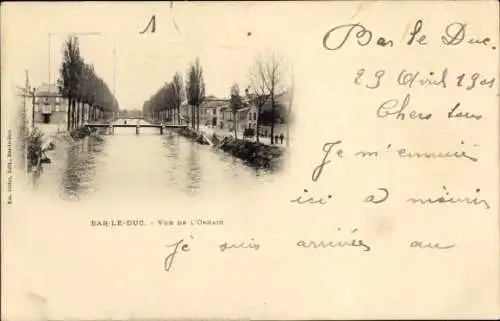 1
Bar le Duc,
29 Avril 1901
Chers tous
Je m'ennuie
ici à mourir
BAR-LE-DUC. - VUE DE L'ORNAIN
je suis arrivée au